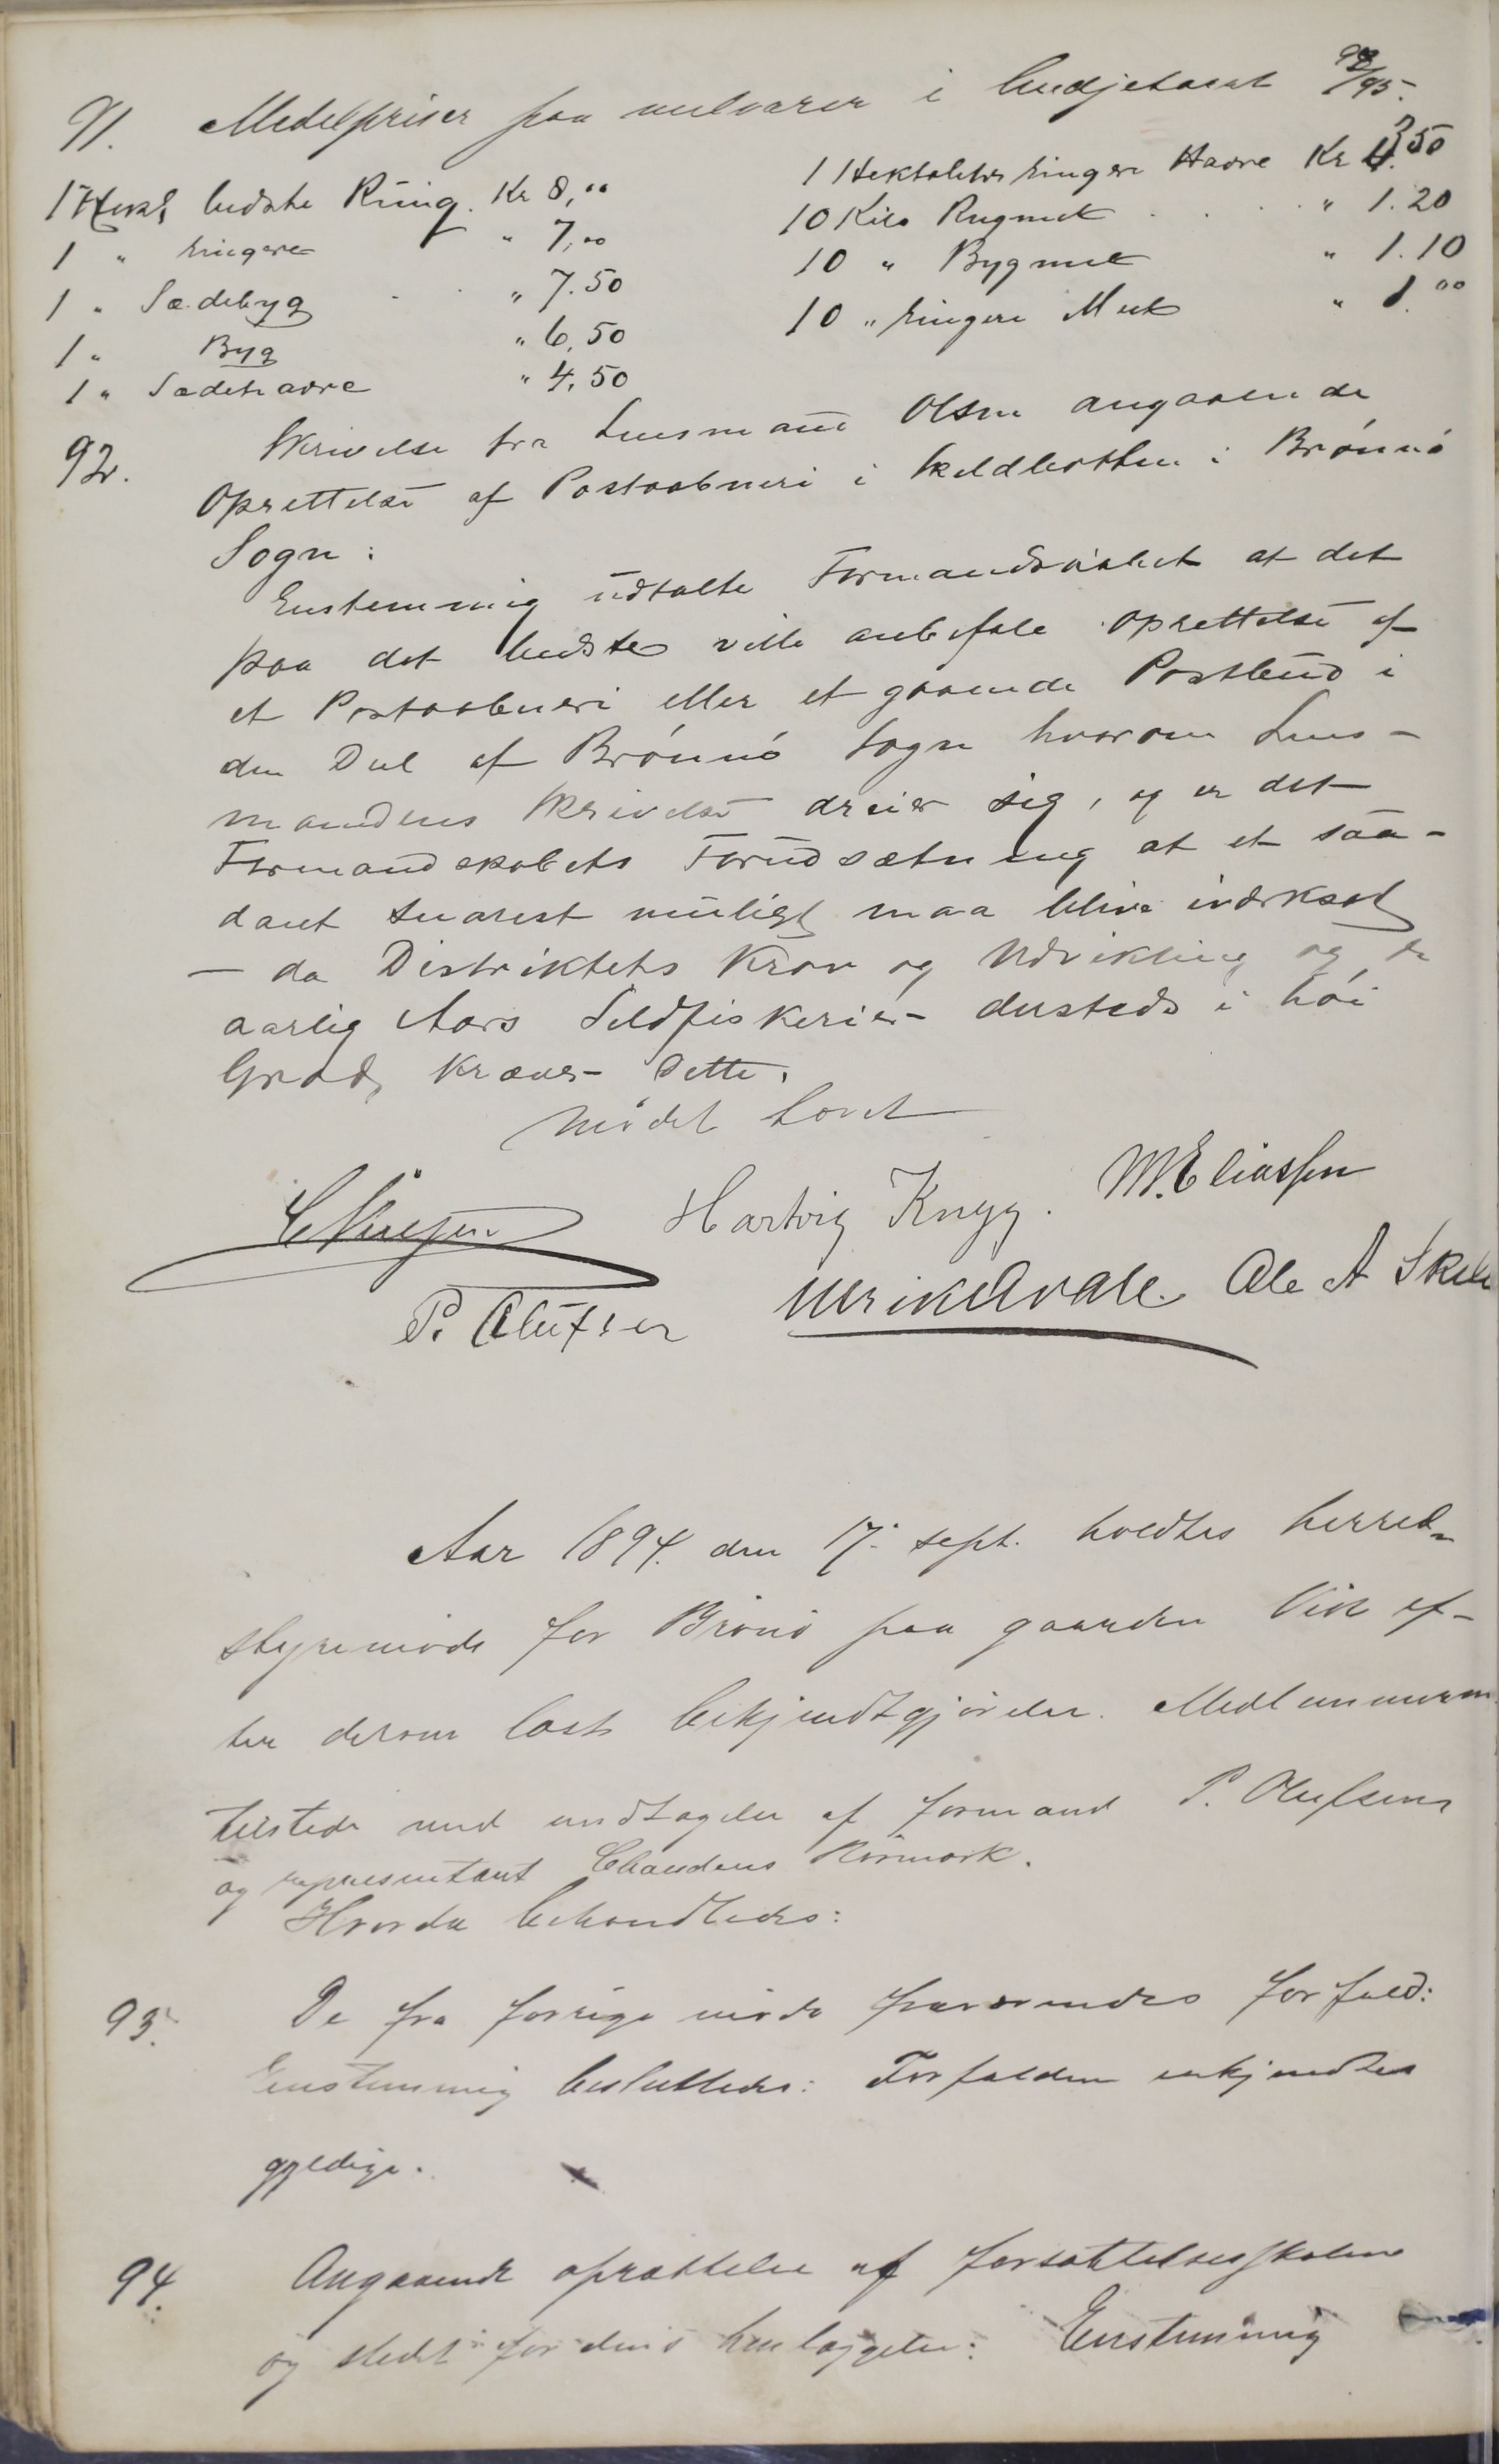 91. Medelpriser paa melvarer i budjetaaret 94/95.
1 Hektl bedste Rúug. Kr 8,00
1 " ringere " 7,00
1 " Sædebyg " 7.50
1 " Byg " 6,50
1 " Sædehavre " 4,50
1 Hektoliter ringere Havre Kr 3.50
10 Kilo Rugmel " 1.20
10 " Bygmel " 1.10
10 " ringere Mel " 1.00
92. Skrivelse fra Lensmand Olsen angaaende
Oprettelse af Postaabneri i Skeldbotten i Brønnø
Sogn:
Enstemmig udtalte Formandskabet at det
paa det bedste ville anbefale oprettelse af
et Postaabneri eller et gaaende Postbud i
den Del af Brønnø Sogn hvorom Lens-
mandens Skrivelse dreier sig, og er det
Formandskabets Forudsætning at et saa-
dant snarest muligt maa blive iværksat
— da Distriktets Krav og Udvikling og de
aarlig Aars Sildfiskerier dersteds i høi
Grad, kræver dette.
Mødet hævet
Hartvig Krygg. M. Eliassen
P. Olufsen Ulrik Qvale. Ole A Skill
Aar 1894. den 17. sept. holdtes herred-
styremøde for Brønø paa gaarden Vik ef-
ter derom læst bekjendtgjørelse. Medlemmerne
tilstede med undtagelse af formand P. Olufsen
og representant Chaudens Rørmark.
Hvorda behandledes:
93. De fra forrige møde fraværendes forfald:
Enstemmig besluttedes: Forfalden erkjendtes
gyldige.
94. Angaaende oprættelse af forsættelsesskolen
og stedet for dens henlæggelse: Enstemmig